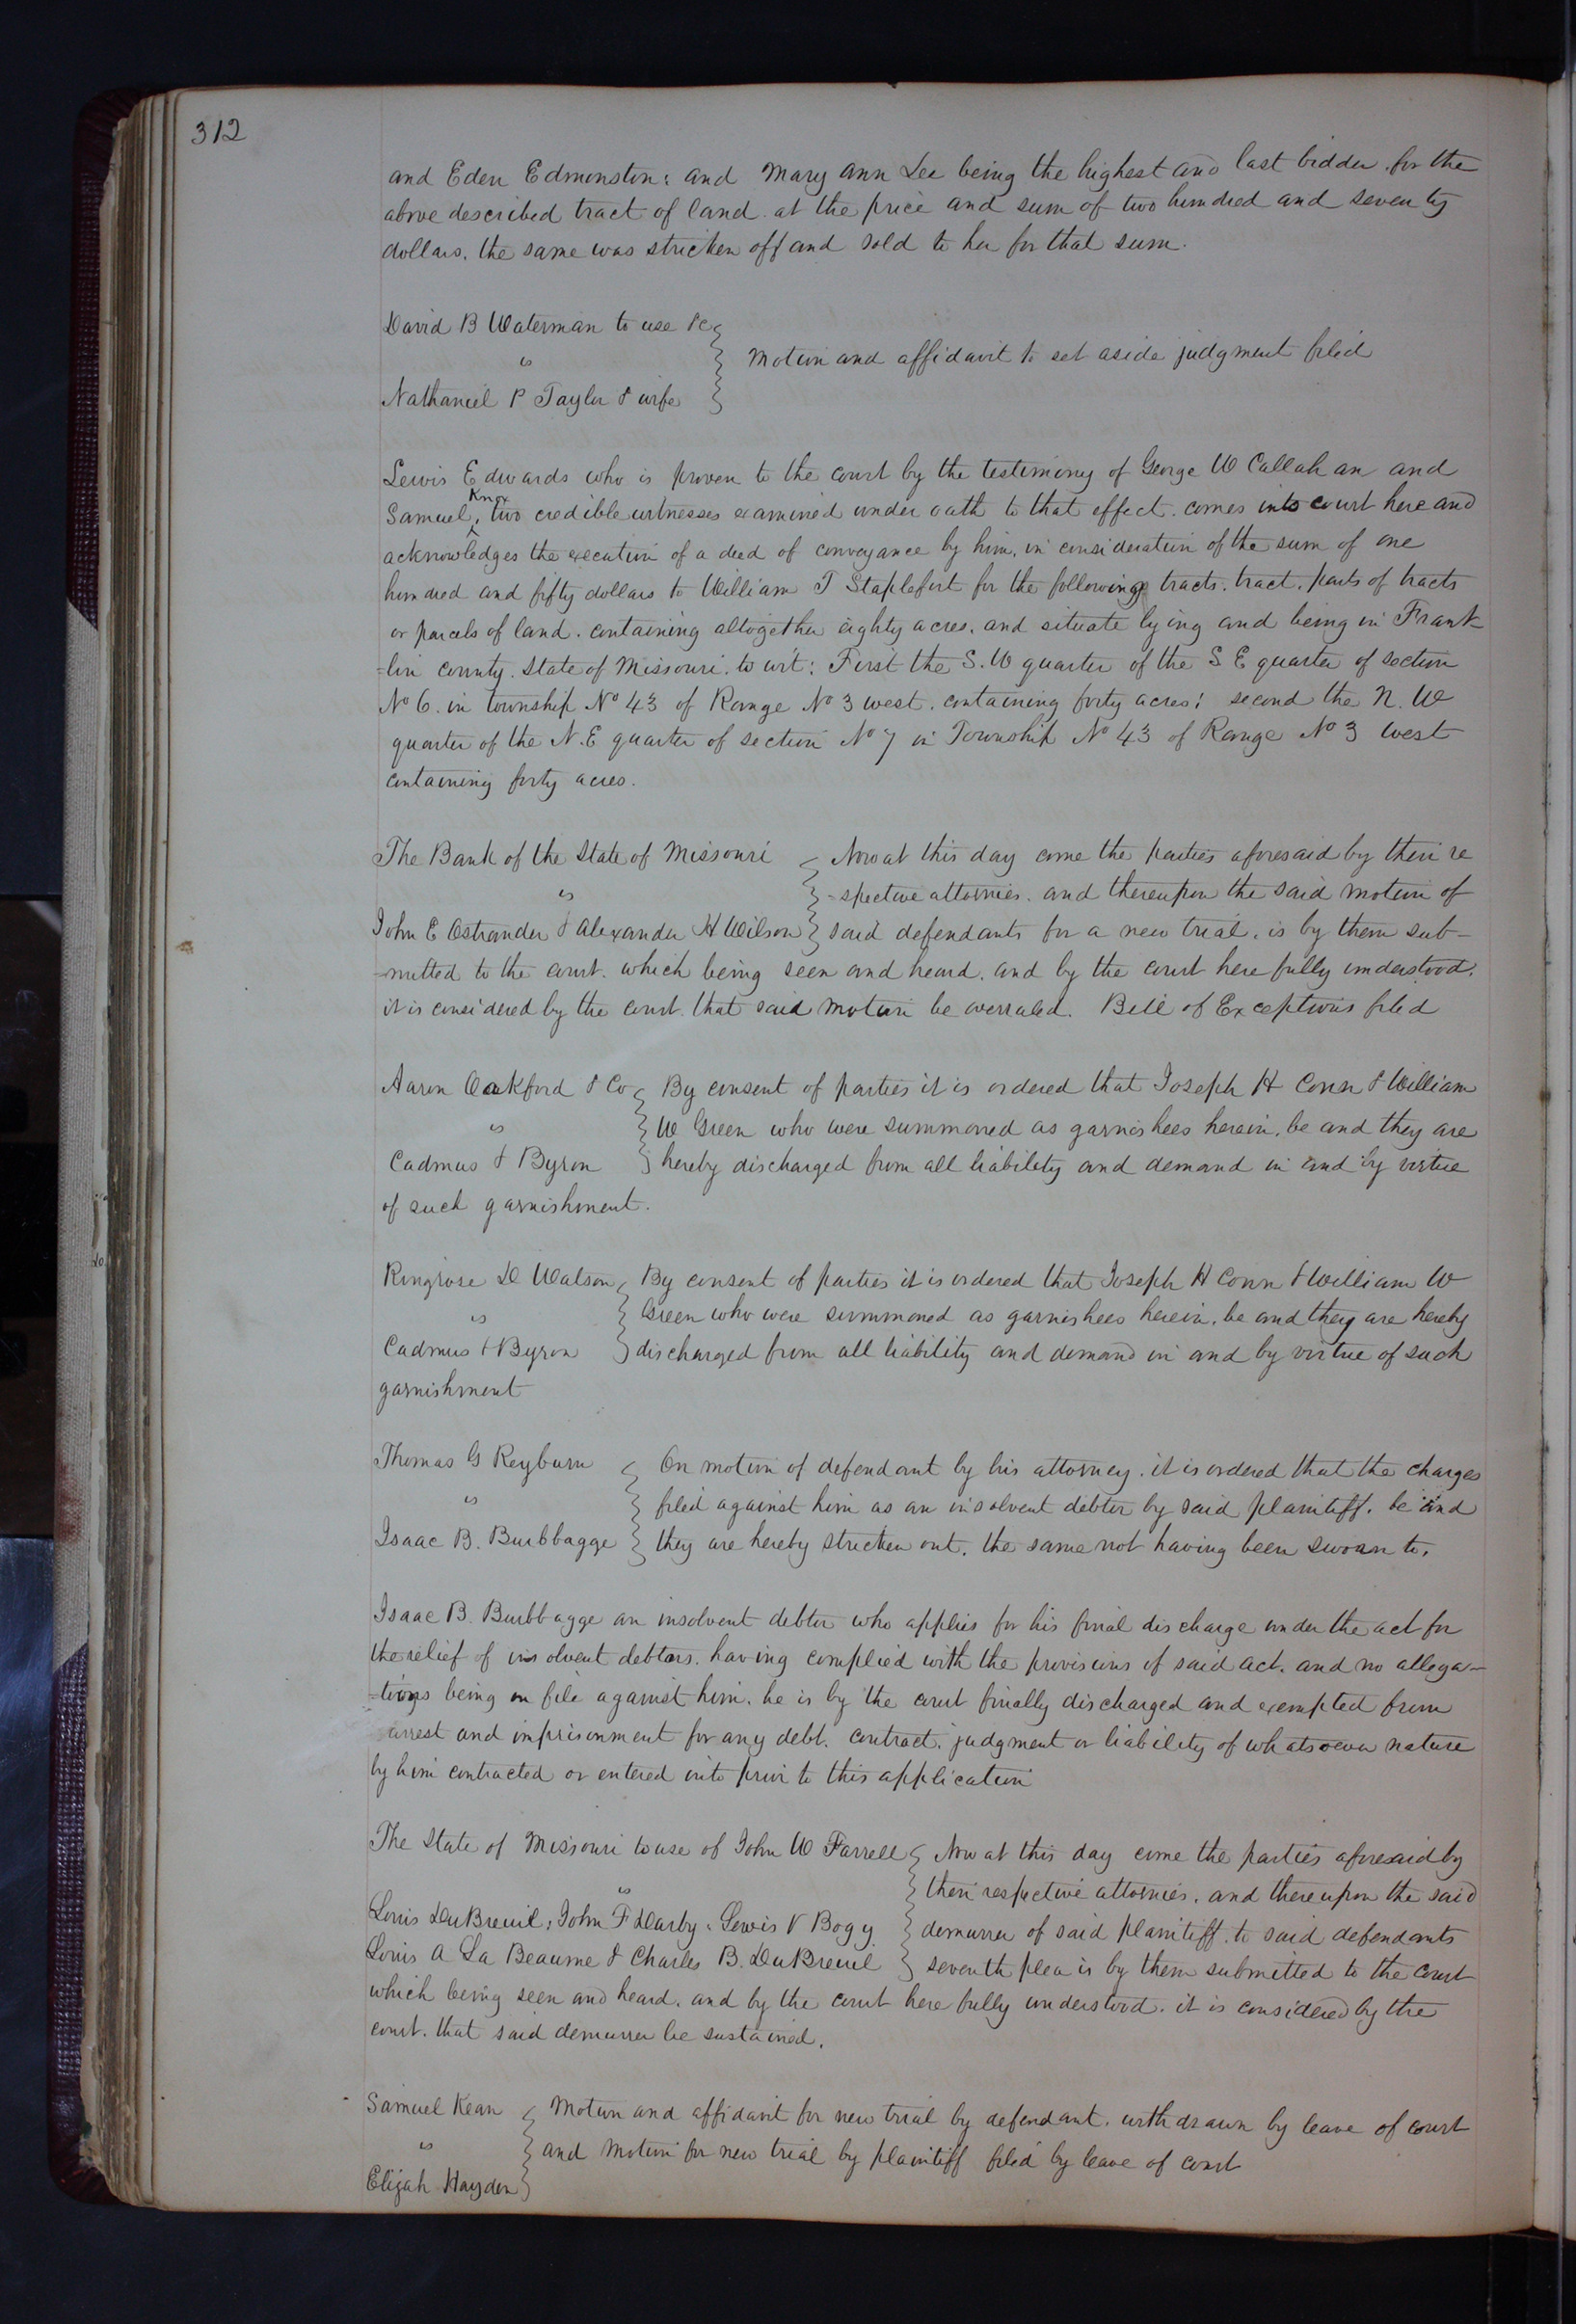 312
and Eden Edmonston: and Mary Ann Lee being the highest and last bidder for the
above described tract of land. at the price and sum of two hundred and seventy
dollars. the same was stricken off and sold to her for that sum.
David B Waterman to use &c
vs
Motion and affidavit to set aside judgment filed
Nathaniel P Taylor & wife
Lewis Edwards who is proven to the court by the testimony of George W Callahan and
Samuel Knox, two credible witnesses examined under oath to that effect. comes into court here and
acknowledges the execution of a deed of conveyance by him, in consideration of the sum of one
hundred and fifty dollars to William T Staplefort for the following tracts. tract. parts of tracts
or parcels of land. containing altogether eighty acres. and situate lying and being in Frank-
-lin county. State of Missouri. to wit: First the S.W quarter of the S E quarter of section
No 6. in township No 43 of Range No 3 west. containing forty acres: second the N.W
quarter of the N.E quarter of section No 7 in Township No 43 of Range No 3 west
containing forty acres.
The Bank of the State of Missouri Now at this day come the parties aforesaid by their re
vs -spective attornies. and thereupon the said motion of
John E Ostrander & Alexander H Wilson said defendants for a new trial. is by them sub-
-mitted to the court. which being seen and heard. and by the court here fully understood.
it is considered by the court. that said motion be overruled. Bill of Exceptions filed
Aaron Oakford & Co By consent of parties it is ordered that Joseph H Conn & William
vs W Green who were summoned as garnishees herein, be and they are
Cadmus & Byron hereby discharged from all liability and demand in and by virtue
of such garnishment.
Ringrose D Watson By consent of parties it is ordered that Joseph H Conn & William W
vs Green who were summoned as garnishees herein. be and they are hereby
Cadmus & Byron discharged from all liability and demand in and by virtue of such
garnishment
Thomas G Reyburn On motion of defendant by his attorney. it is ordered that the charges
vs filed against him as an insolvent debtor by said plaintiff. be and
Isaac B. Burbbagge they are hereby stricken out. the same not having been sworn to.
Isaac B. Burbbagge an insolvent debtor who applies for his final discharge under the act for
the relief of insolvent debtors. having complied with the provisions of said act. and no allega-
-tions being on file against him. he is by the court finally discharged and exempted from
arrest and imprisonment for any debt. contract. judgment or liability of whatsoever nature
by him contracted or entered into prior to this application
The State of Missouri to use of John W Farrell Now at this day come the parties aforesaid by
vs their respective attornies. and thereupon the said
Louis DuBreuil, John F Darby. Lewis V Bogy demurrer of said plaintiff. to said defendants
Louis A La Beaume & Charles B. DuBreuil seventh plea is by them submitted to the court
which being seen and heard. and by the court here fully understood. it is considered by the
court. that said demurrer be sustained.
Samuel Kean Motion and affidavit for new trial by defendant. withdrawn by leave of court
vs and motion for new trial by plaintiff filed by leave of court
Elijah Hayden